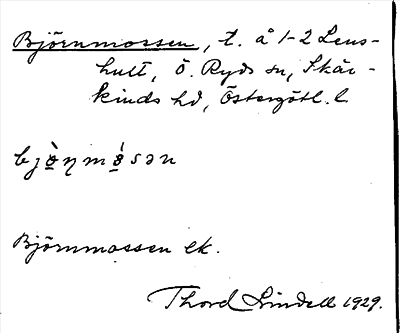 Björnmossen, t. å 1-2 Lens-
hult, Ö. Ryds sn, Skär-
kinds hd, Östergötl. l.
bjö̀ŋmå̀sən
Björnmossen ek.
Thord Lindell 1929.